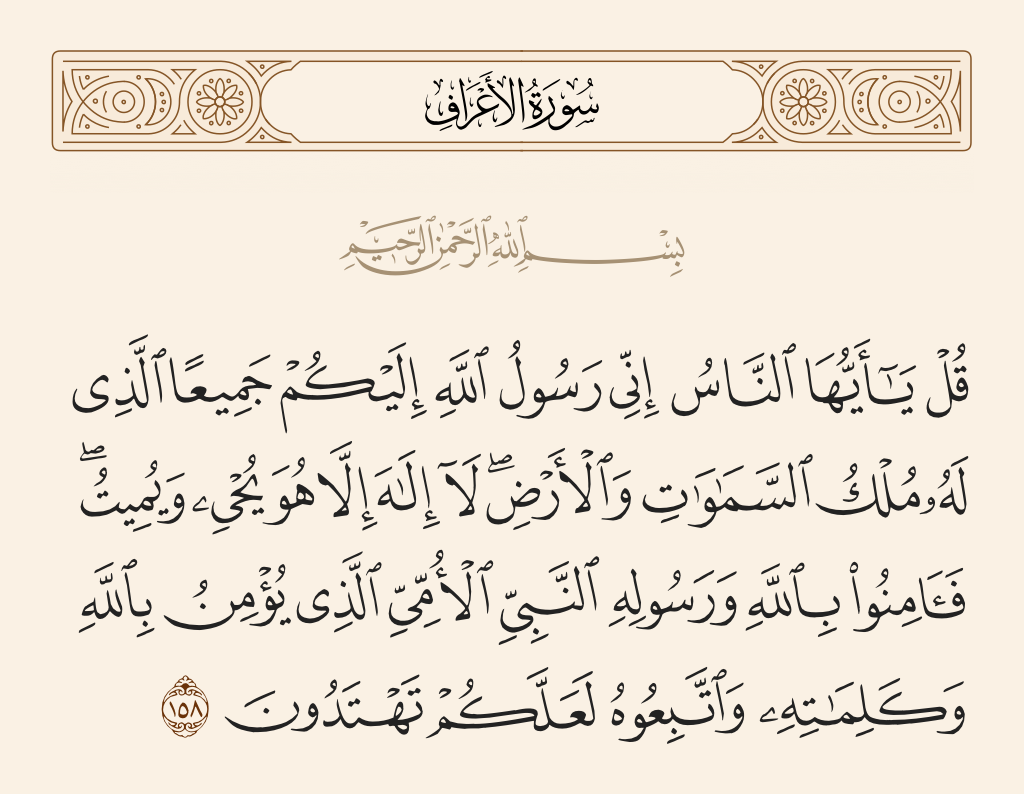 سُورَةُ الأَعْرَافِ
بِسْمِ ٱللَّهِ ٱلرَّحْمَٰنِ ٱلرَّحِيمِ
قُلْ يَـٰٓأَيُّهَا ٱلنَّاسُ إِنِّى رَسُولُ ٱللَّهِ إِلَيْكُمْ جَمِيعًا ٱلَّذِى
لَهُۥ مُلْكُ ٱلسَّمَـٰوَٰتِ وَٱلْأَرْضِ ۖ لَآ إِلَـٰهَ إِلَّا هُوَ يُحْىِۦ وَيُمِيتُ ۖ
فَـَٔامِنُوا۟ بِٱللَّهِ وَرَسُولِهِ ٱلنَّبِىِّ ٱلْأُمِّىِّ ٱلَّذِى يُؤْمِنُ بِٱللَّهِ
وَكَلِمَـٰتِهِۦ وَٱتَّبِعُوهُ لَعَلَّكُمْ تَهْتَدُونَ ١٥٨